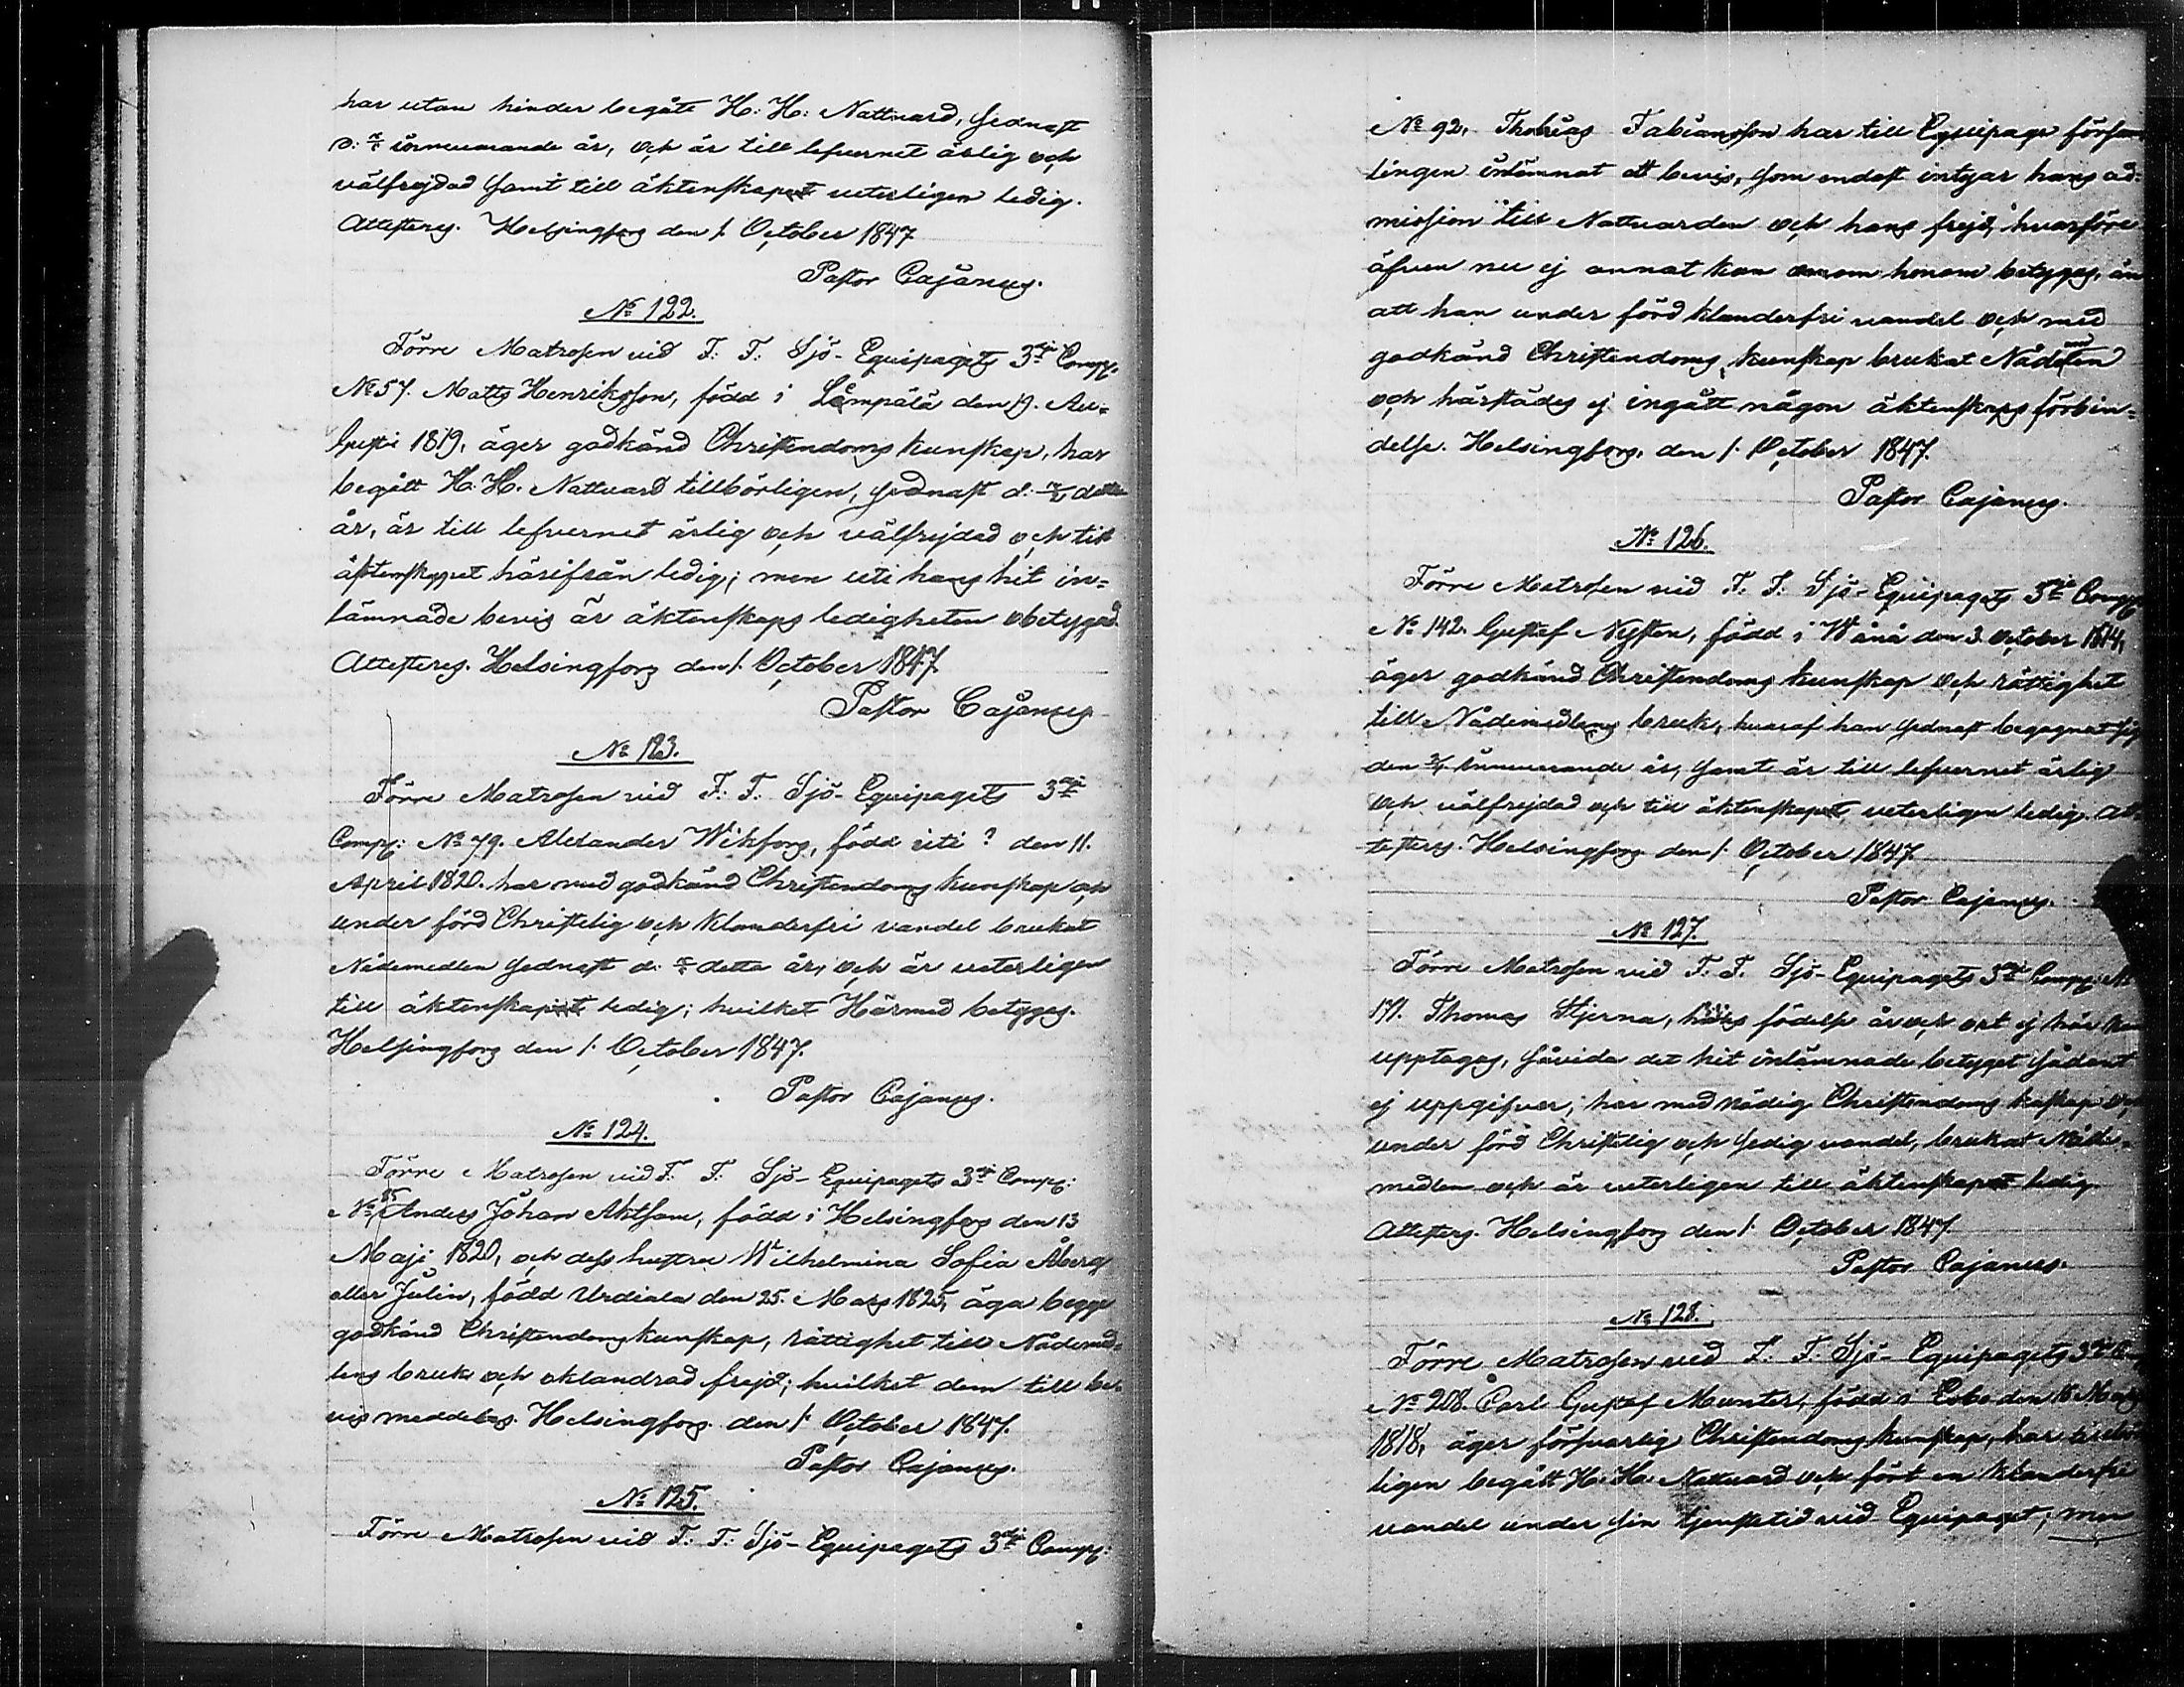 har utan hinder begått H: H: Nattvard, sednast
d: innevarande år, och är till lefvernet ärlig och
välfrejdad samt till äktenskapet veterligen ledig.
Attesteras. Helsingfors den 1. October 1847.
Pastor Cajanus.
No 122.
Förre Matrosen vid F: F: Sjö-Equipagets 3dje Comp:
No 57. Matts Henriksson, född i Lämpälä den 19. Au-
gusti 1819, äger godkänd Christendoms kunskap, har
begått H. H. Nattvard tillbörligen, sednast d: detta
år, är till lefvernet ärlig och välfrejdad och till
äktenskapet härifrån ledig; men uti hans hit in-
lämnade bevis är äktenskaps ledigheten obetygad.
Attesteras. Helsingfors den 1. October 1847.
Pastor Cajanus
No 123.
Förre Matrosen vid F: F: Sjö-Equipagets 3dje
Comp: No 79. Alexander Wikfors, född uti ? den 11.
April 1820. har med godkänd Christendoms kunskap och
under förd Christelig och klanderfri vandel brukat
Nådemedlen sednast d: detta år, och är veterligen
till äktenskapet ledig; hvilket Härmed betyges.
Helsingfors den 1. October 1847.
Pastor Cajanus.
No 124.
Förre Matrosen vid F: F: Sjö-Equipagets 3dje Comp:
No 85 Anders Johan Aktsam, född i Helsingfors den 13
Maji 1820, och dess hustru Wilhelmina Sofia Åberg
eller Julin, född Urdiala den 25. Mars 1825, äga begge
godkänd Christendoms kunskap, rättighet till Nådemed-
lens bruk och oklandrad frejd; hvilket dem till be-
vis meddelas. Helsingfors den 1. October 1847.
Pastor Cajanus.
No 125.
Förre Matrosen vid F: F: Sjö-Equipagets 3dje Comp:
No 92. Thobias Fabiansson har till Equipage försam
lingen inlämnat ett bevis, som endast intygar hans ad-
mission till Nattvarden och hans frejd, hvarföre
äfven nu ej annat kan om honom betygas, än
att han under förd klanderfri vandel och med
godkänd Christendoms kunskap brukat Nådemedlen
och härstädes ej ingått någon äktenskaps förbin-
delse. Helsingfors, den 1. October 1847.
Pastor Cajanus.
No 126.
Förre Matrosen vid F: F: Sjö-Equipagets 3dje Comp
No 142. Gustaf Nysten, född i Wånå den 3. October 1814,
äger godkänd Christendoms kunskap och rättighet
till Nådemedlens bruk, hvaraf han sednast begagnat sig
den innevarande år, samt är till lefvernet ärlig
och välfrejdad och till äktenskapet veterligen ledig. At-
testeras. Helsingfors den 1. October 1847.
Pastor Cajanus.
No 127.
Förre Matrosen vid F: F. Sjö-Equipagets 3dje Comp: No
171. Thomas Stjerna, hvars födelse år och ort ej här kan
upptagas, såvida det hit inlämnade betyget sådant
ej uppgifver, har med nödig Christendoms kuskap och
under förd Christelig och sedig vandel, brukat Nåde-
medlen och är veterligen till äktenskapet ledig.
Attesteras. Helsingfors den 1. October 1847.
Pastor Cajanus.
No 128.
Förre Matrosen vid F: F: Sjö-Equipagets 3dje
No 208. Carl Gustaf Munter, född i Esbo den 18 Mars
1818, äger försvarlig Christendoms kunskap, har tillbör
ligen begått H: H: Nattvard och fört en klanderfri
vandel under sin tjenstetid vid Equipaget; men